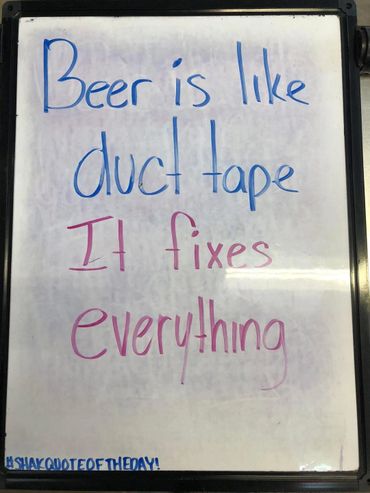 Beer is like
duct tape
It fixes
everything
#SHAKQUOTEOFTHEDAY!